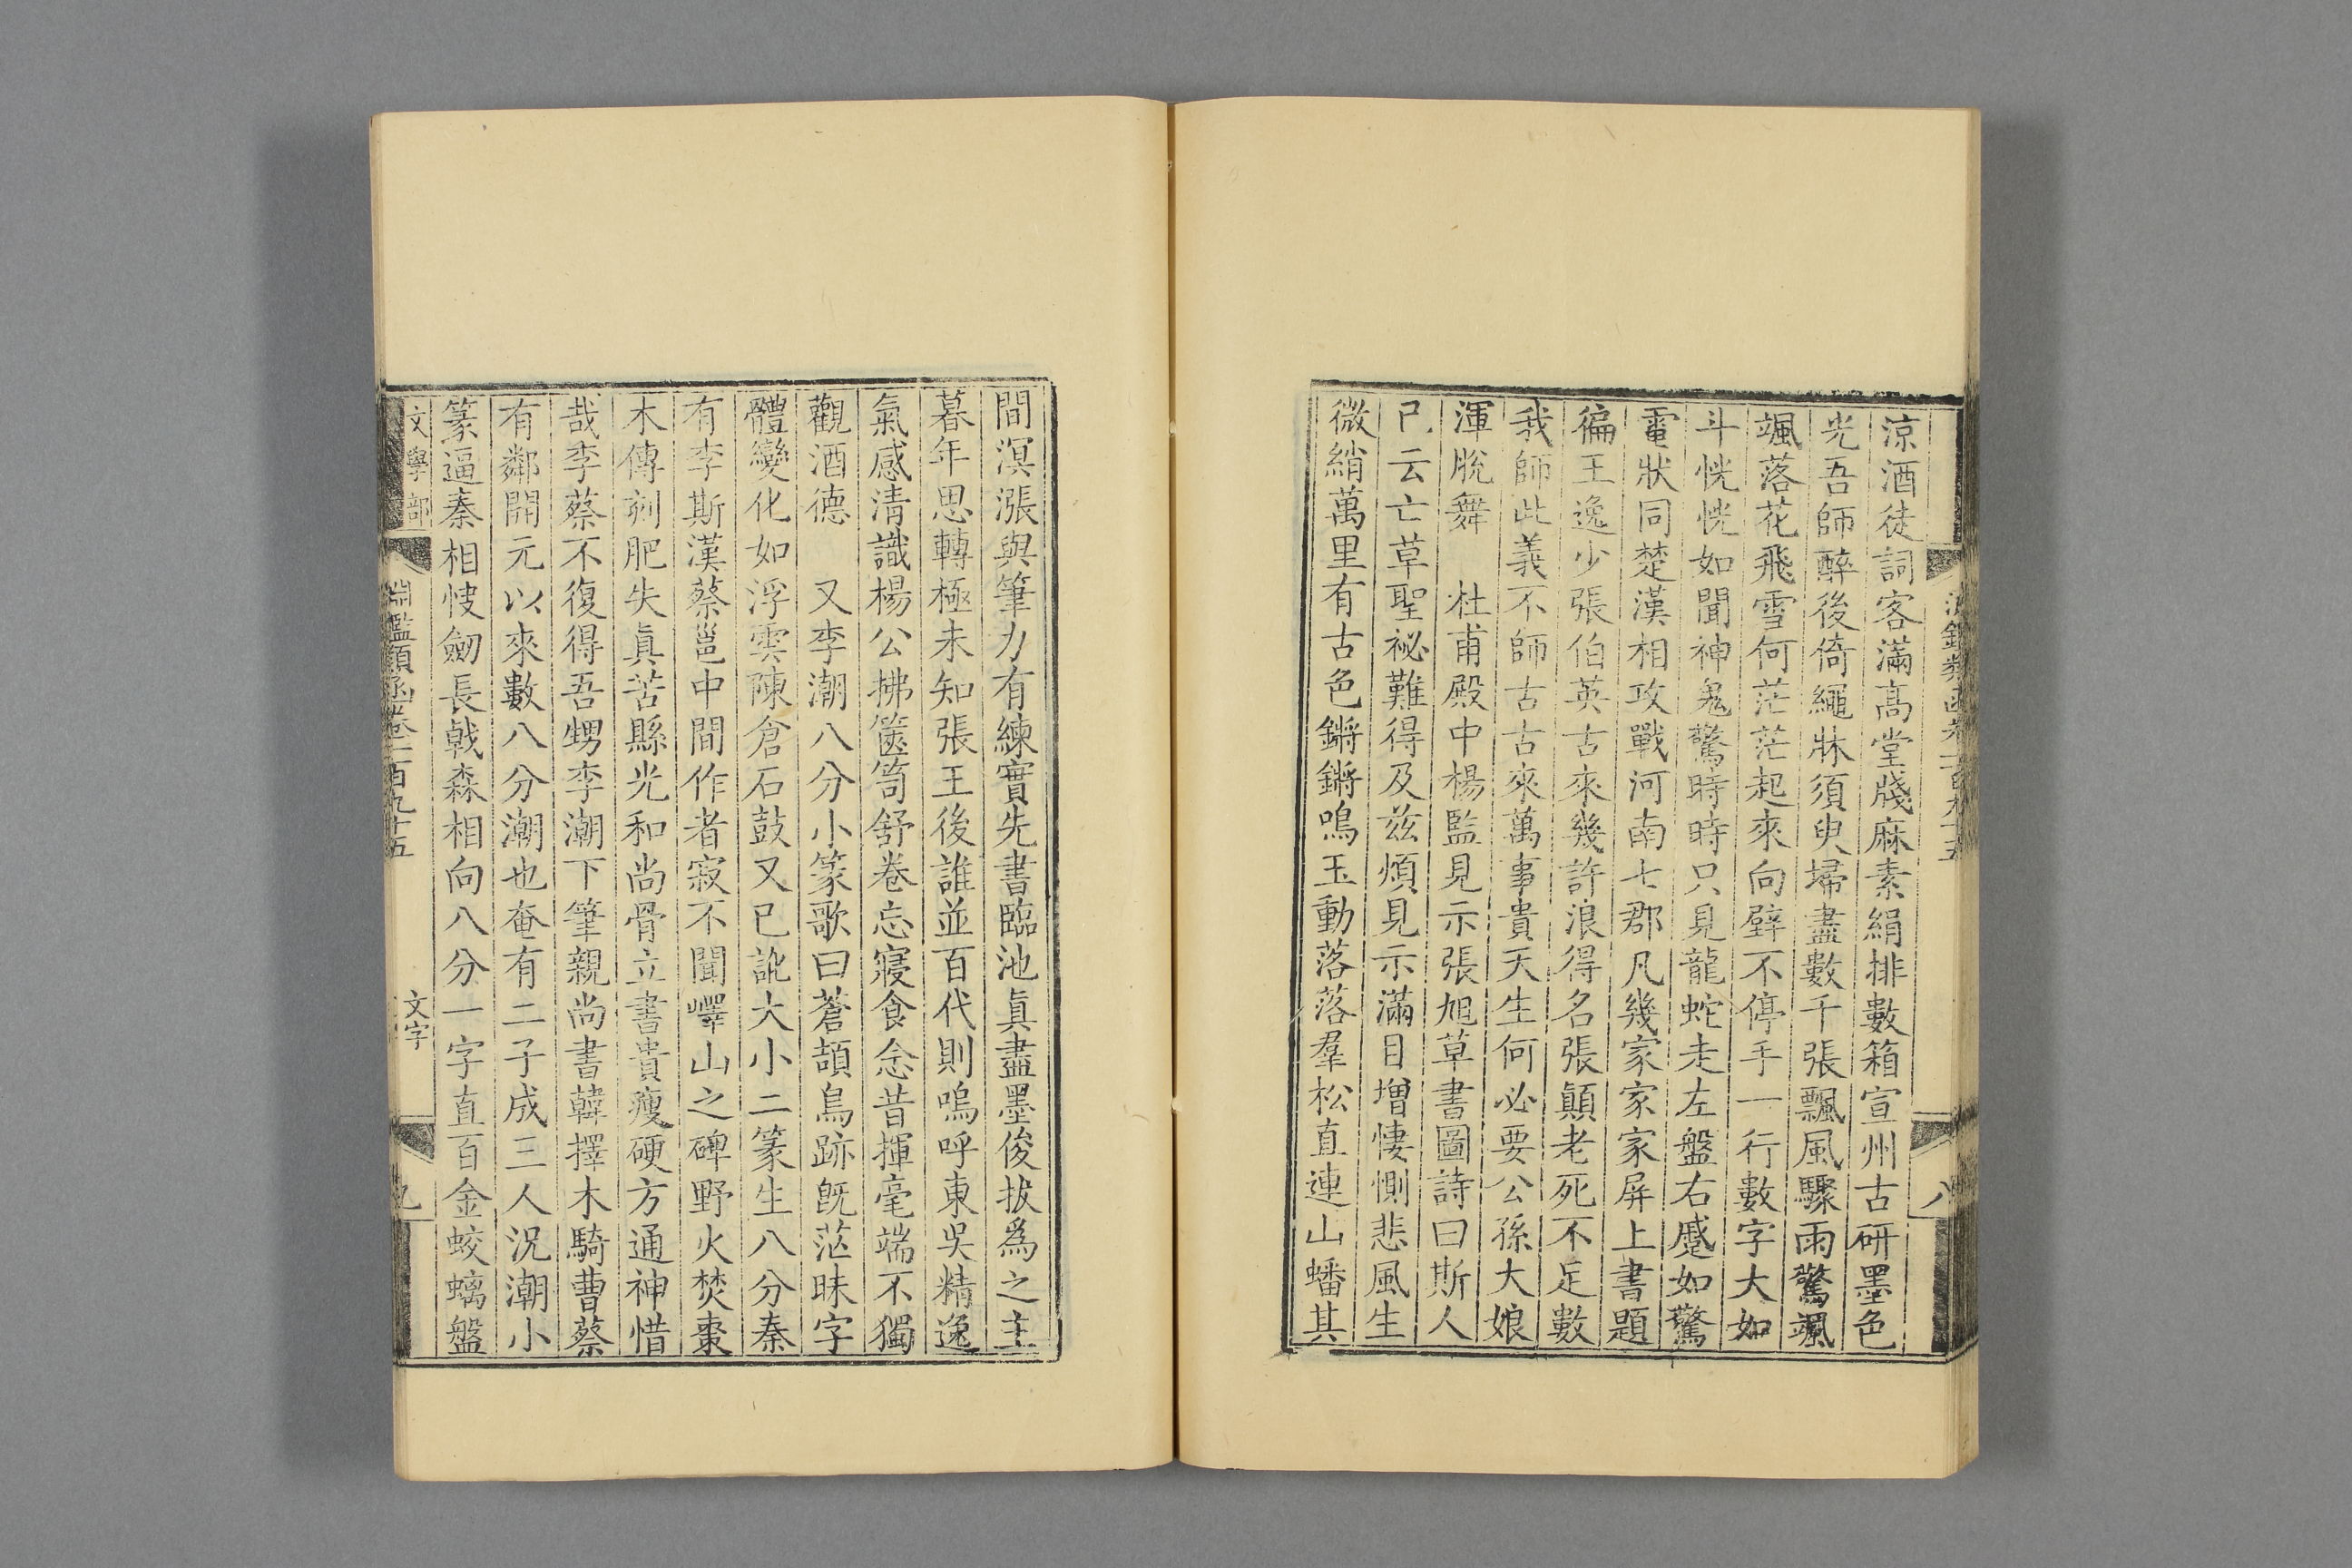 涼酒徒詞客滿高堂牋麻素絹排數箱宣州古研墨色
光吾師醉後倚繩牀須臾掃盡數千張飄風驟雨驚颯
颯落花飛雪何茫茫起來向壁不停手一行數字大如
斗恍恍如聞神鬼驚時時只見龍蛇走左盤右蹙如驚
電狀同楚漢相攻戰河南七郡凡幾家家家屏上書題
徧王逸少張伯英古來幾許浪得名張顛老死不足數
我師此義不師古古來萬事貴天生何必要公孫大娘
渾脫舞　杜甫殿中楊監見示張旭草書圖詩曰斯人
已云亡草聖祕難得及兹煩見示滿目增悽惻悲風生
微綃萬里有古色鏘鏘鳴玉動落落羣松直連山蟠其
間溟漲與筆力有練實先書臨池眞盡墨俊拔爲之主
暮年思轉極未知張王後誰並百代則嗚呼東吳精逸
氣感清識楊公拂篋笥舒卷忘寢食念昔揮毫端不獨
觀酒德　又李潮八分小篆歌曰蒼頡鳥跡旣茫昧字
體變化如浮雲陳倉石鼓又已訛大小二篆生八分秦
有李斯漢蔡邕中間作者寂不聞嶧山之碑野火焚棗
木傳刻肥失眞苦縣光和尚骨立書貴瘦硬方通神惜
哉李蔡不復得吾甥李潮下筆親尚書韓擇木騎曹蔡
有鄰開元以來數八分潮也奄有二子成三人況潮小
篆逼秦相快劒長戟森相向八分一字直百金蛟螭盤
文學部　淵鑑類函卷一百九十五　文字　九